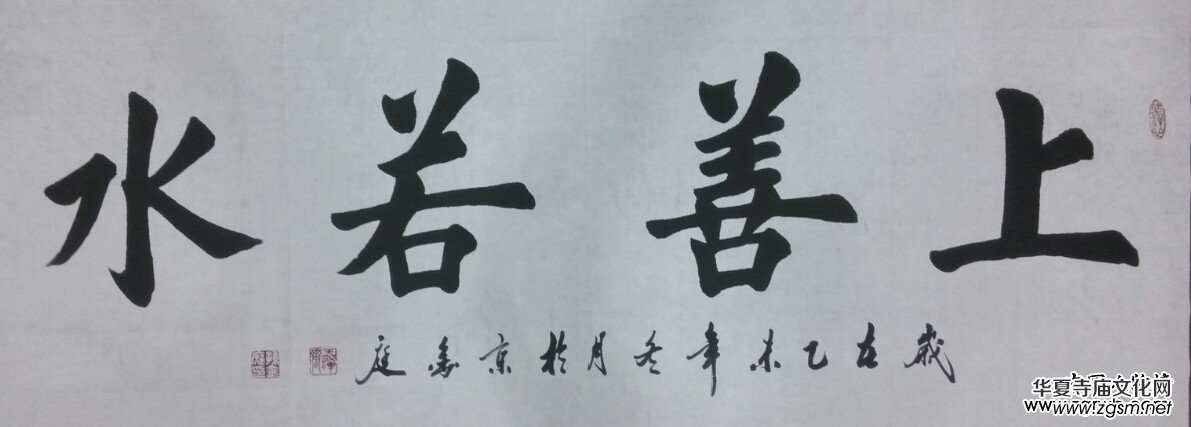 上善若水
歲在乙未年冬月於京庭
华夏寺庙文化网
www.zgsm.net